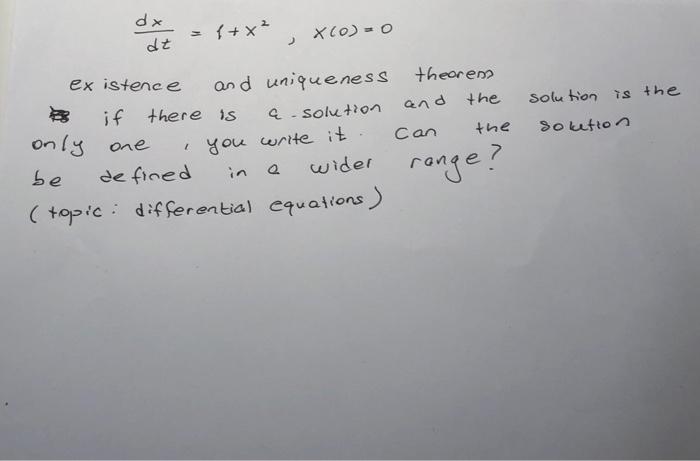 dx/dt = 1+x², x(0)=0
existence and uniqueness theorem
if there is a solution and the solution is the
only one, you write it. Can the solution
be defined in a wider range?
(topic: differential equations)